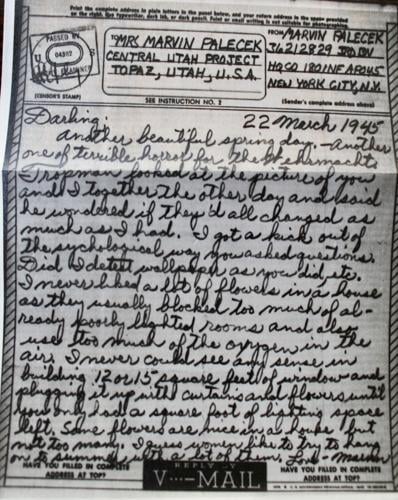 Print the complete address in plain letters in the panel below, and your return address in the space provided
on the right. Use typewriter, dark ink, or dark pencil. Faint or small writing is not suitable for photographing.
PASSED BY
04382
(CENSOR'S STAMP)
TO MRS MARVIN PALECEK
CENTRAL UTAH PROJECT
TOPAZ, UTAH, U.S.A.
SEE INSTRUCTION NO. 2
FROM MARVIN PALECEK
36212829 3RD BN
HQ CO 180 INF APO 45
NEW YORK CITY, N.Y.
(Sender's complete address above)
22 March 1945
Darling:
Another beautiful spring day - another
one of terrible horror for the Wehrmacht.
Tropman looked at the picture of you
and I together the other day and said
he wondered if they'd all changed as
much as I had. I got a kick out of
the psychological way you asked questions.
Did I detest wallpaper as you did etc.
I never liked a lot of flowers in a house
as they usually blocked too much of al-
ready poorly lighted rooms and also
use too much of the oxygen in the
air. I never could see any sense in
building 12 or 15 square feet of window and
plugging it up with curtains and flowers until
you only had a square foot of lighting space
left. Some flowers are nice in a house but
not too many. I guess women like to try to hang
on to summer with a lot of them. Love - Marvin
HAVE YOU FILLED IN COMPLETE
ADDRESS AT TOP?
REPLY BY
V···—MAIL
HAVE YOU FILLED IN COMPLETE
ADDRESS AT TOP?